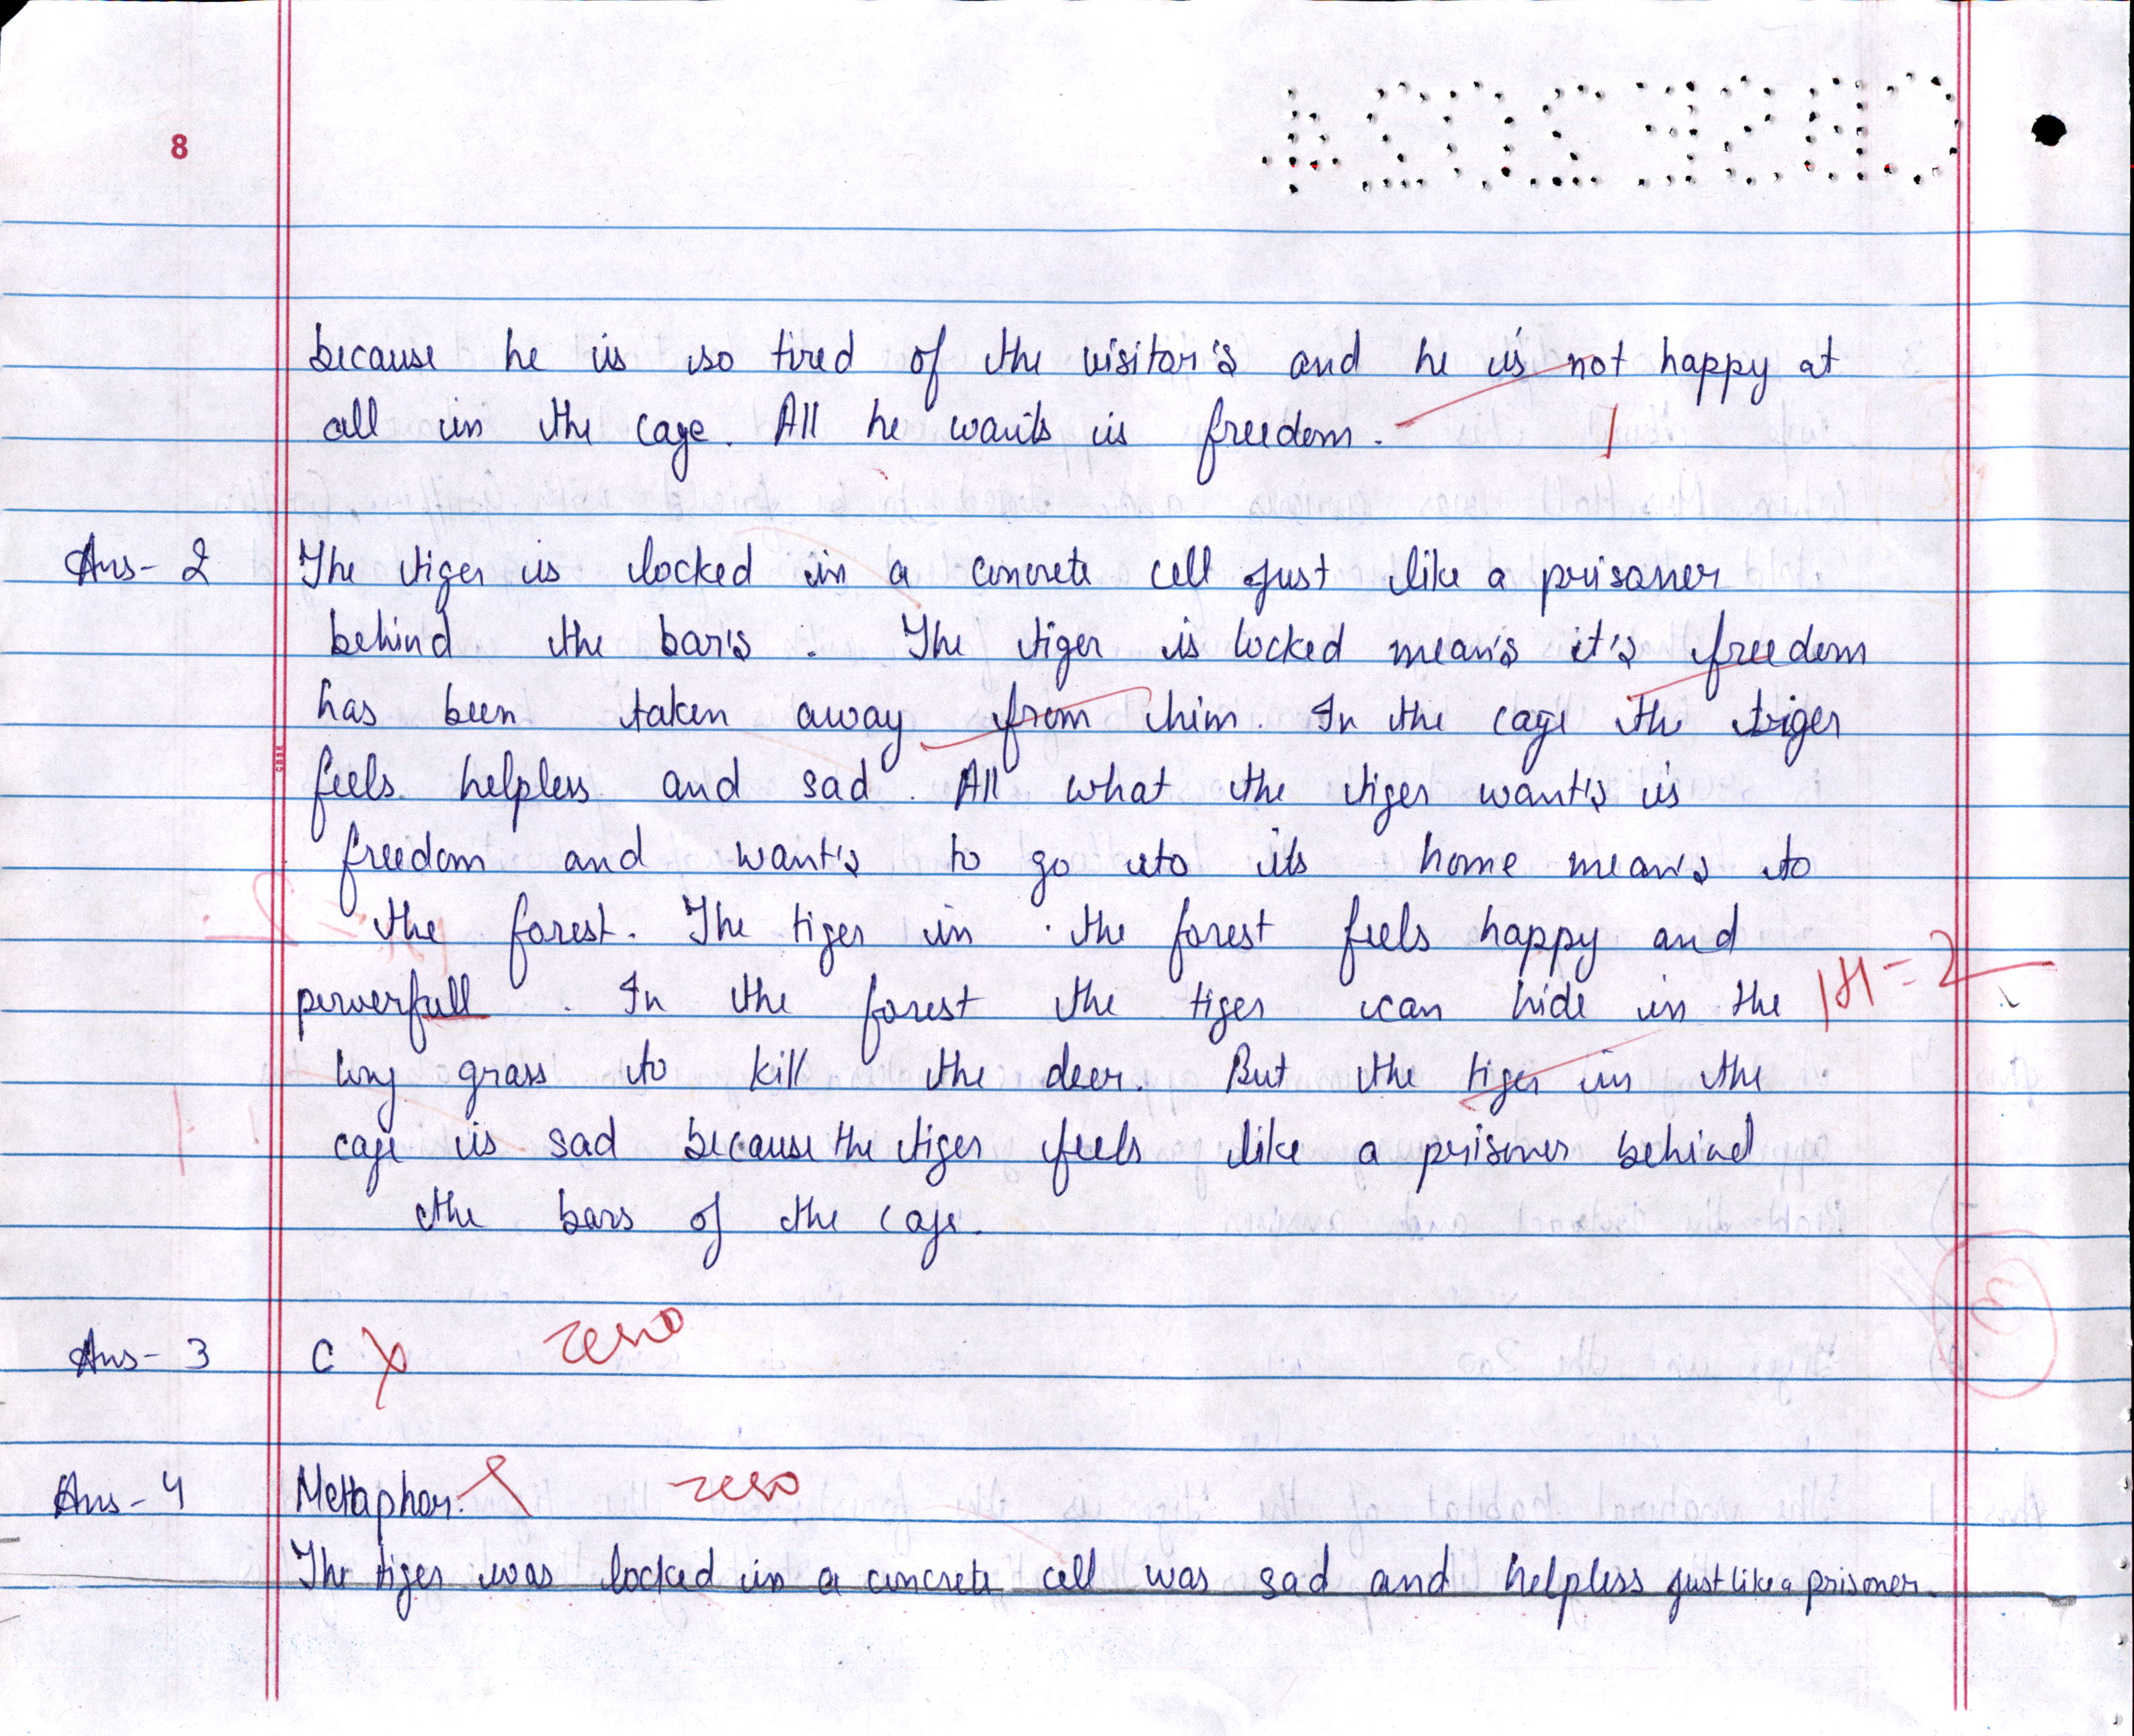 8
because he is so tired of the visitor's and he is not happy at
all in the cage. All he wants is freedom.
1
Ans- 2 The tiger is locked in a concrete cell just like a prisoner
behind the bar's . The tiger is locked mean's it's freedom
has been taken away from him. In the cage the tiger
feels helpless and sad. All what the tiger want's is
freedom and want's to go to its home mean's to
the forest. The tiger in the forest feels happy and
powerfull . In the forest the tiger can hide in the
1+1=2
long grass to kill the deer. But the tiger in the
cage is sad because the tiger feels like a prisoner behind
the bars of the cage.
Ans- 3 C X zero
Ans- 4 Metaphor. X zero
The tiger was locked in a concrete cell was sad and helpless just like a prisoner.